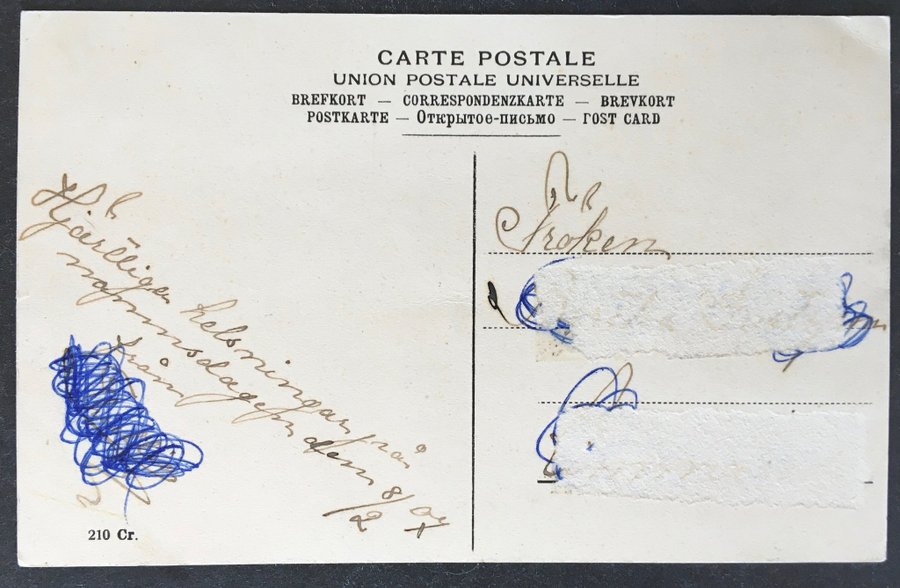 CARTE POSTALE
UNION POSTALE UNIVERSELLE
BREFKORT — CORRESPONDENZKARTE — BREVKORT
POSTKARTE — Открытое-письмо — POST CARD
Hjärtliga helsningar på
namnsdagen den 8/2 07
från
Fröken
210 Cr.